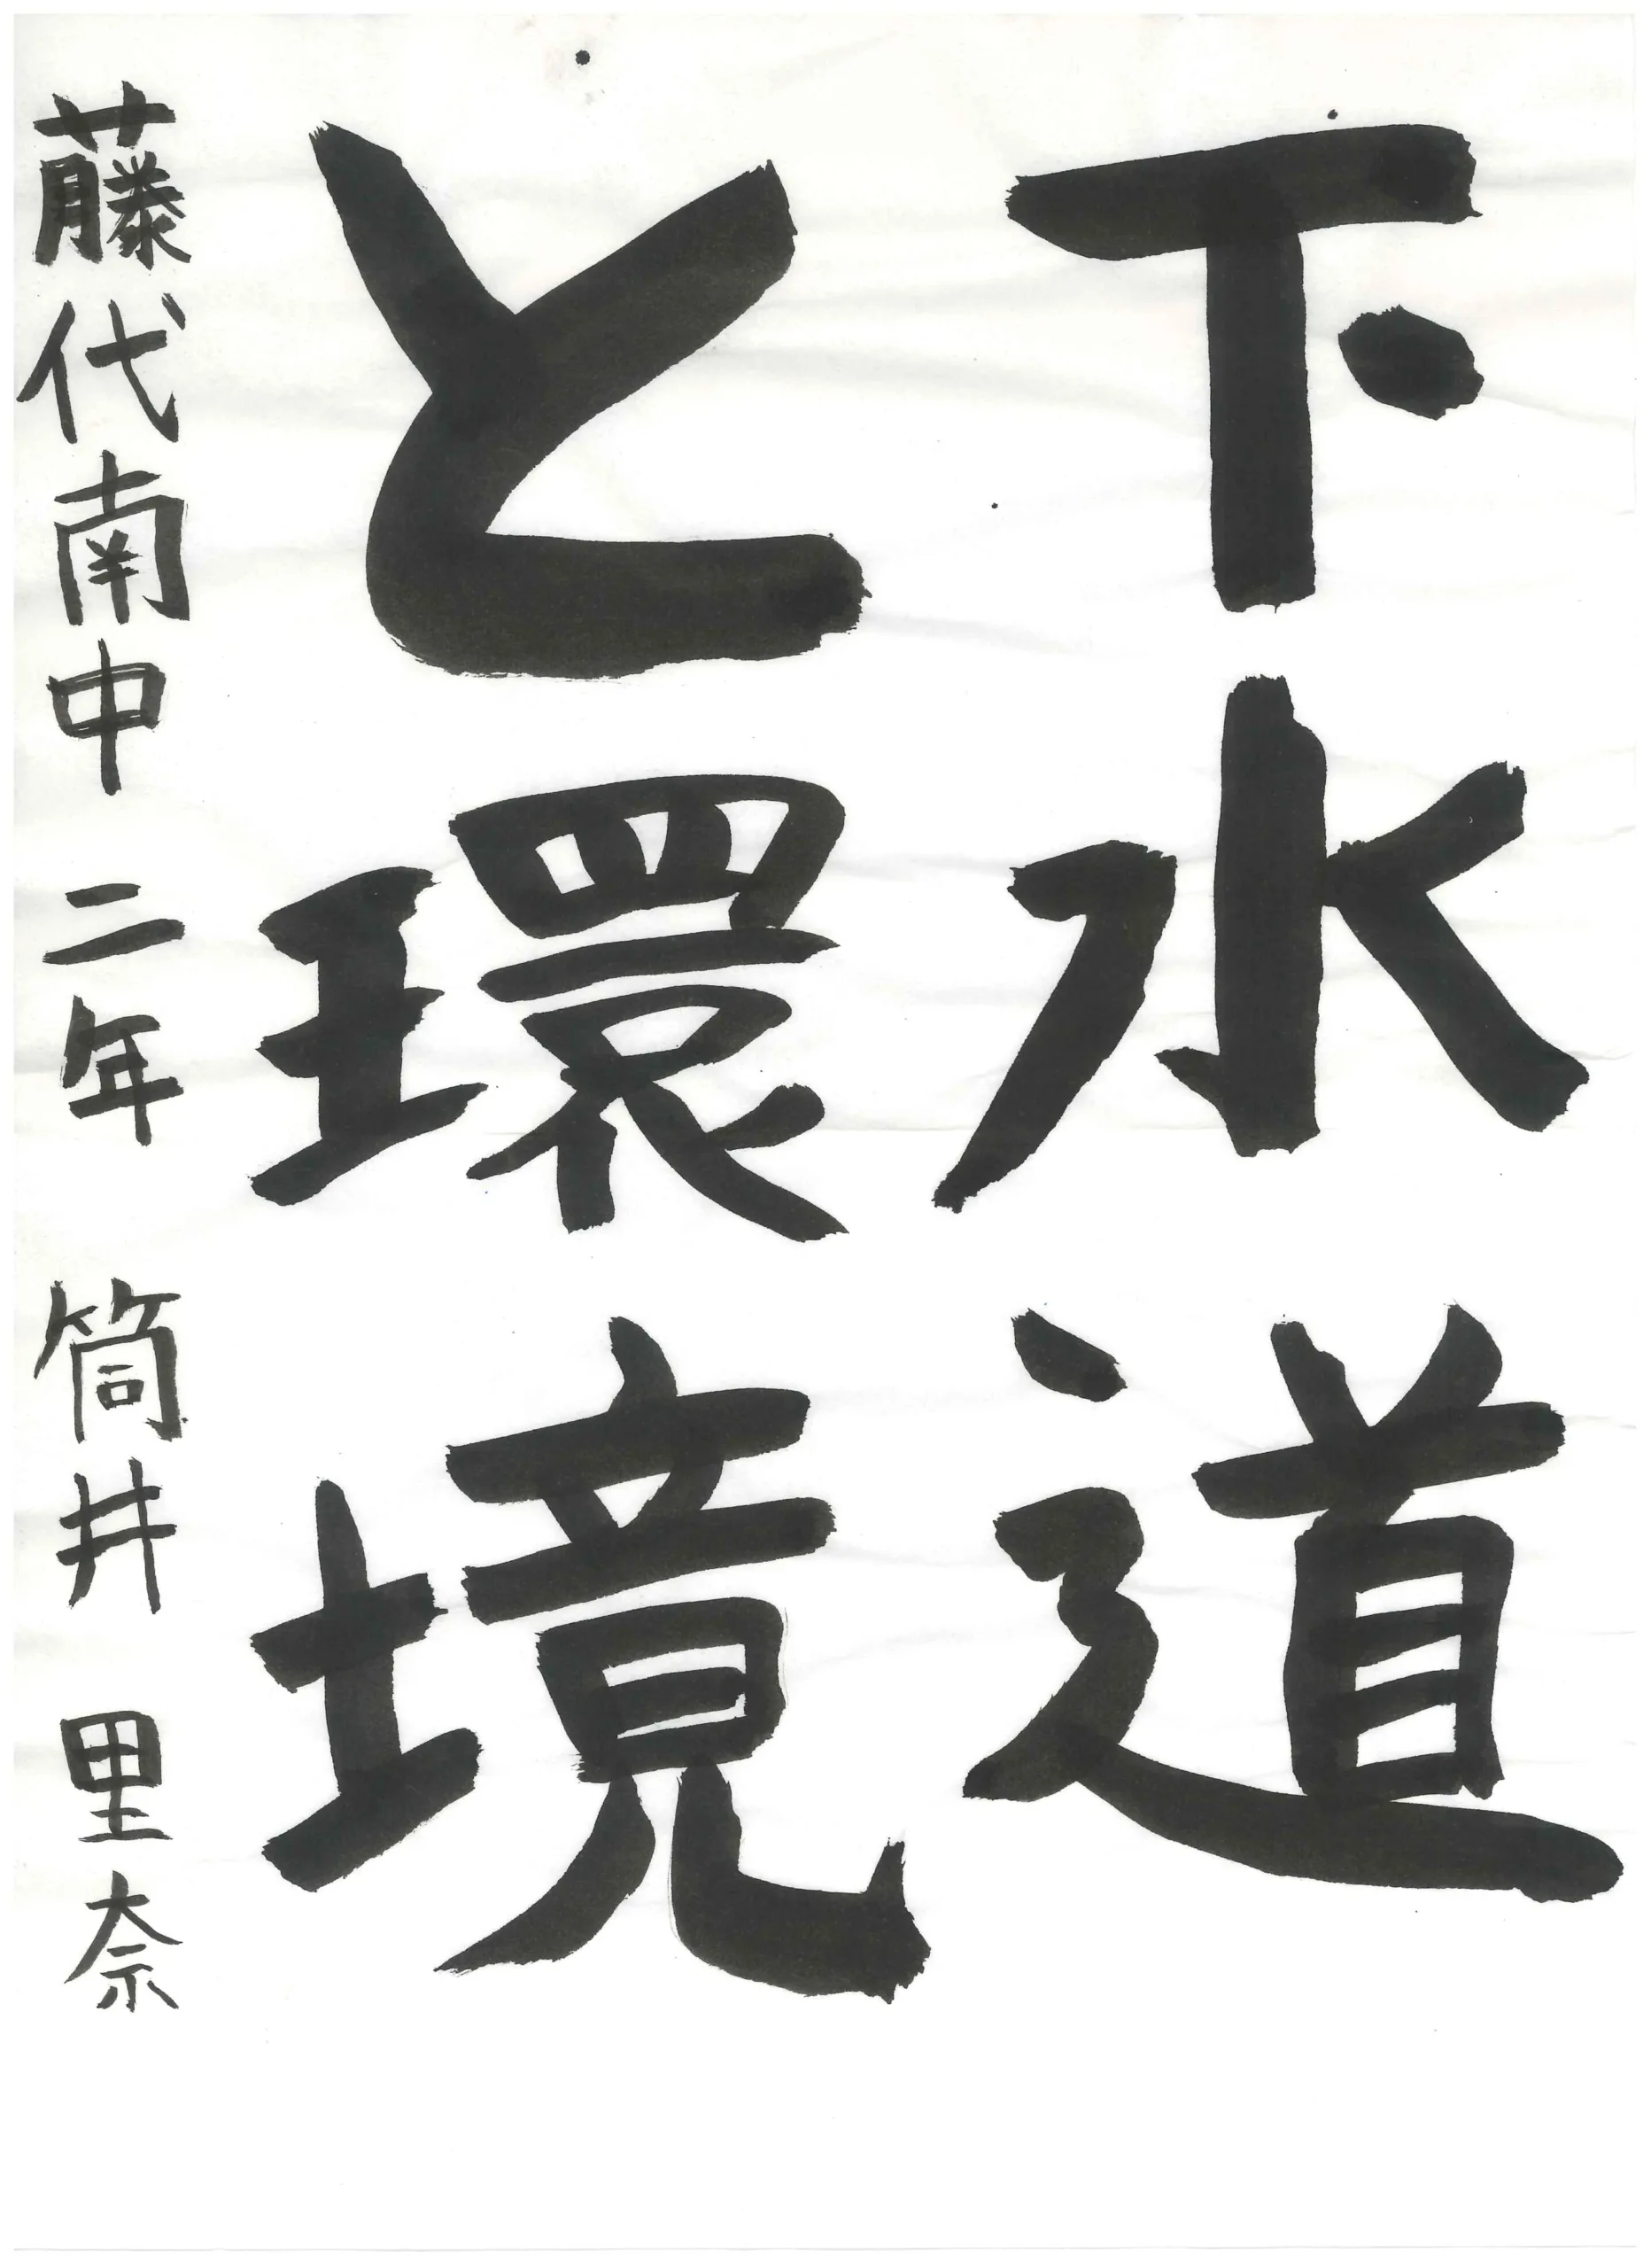 下水道
と環境
藤代南中 二年 筒井 里奈